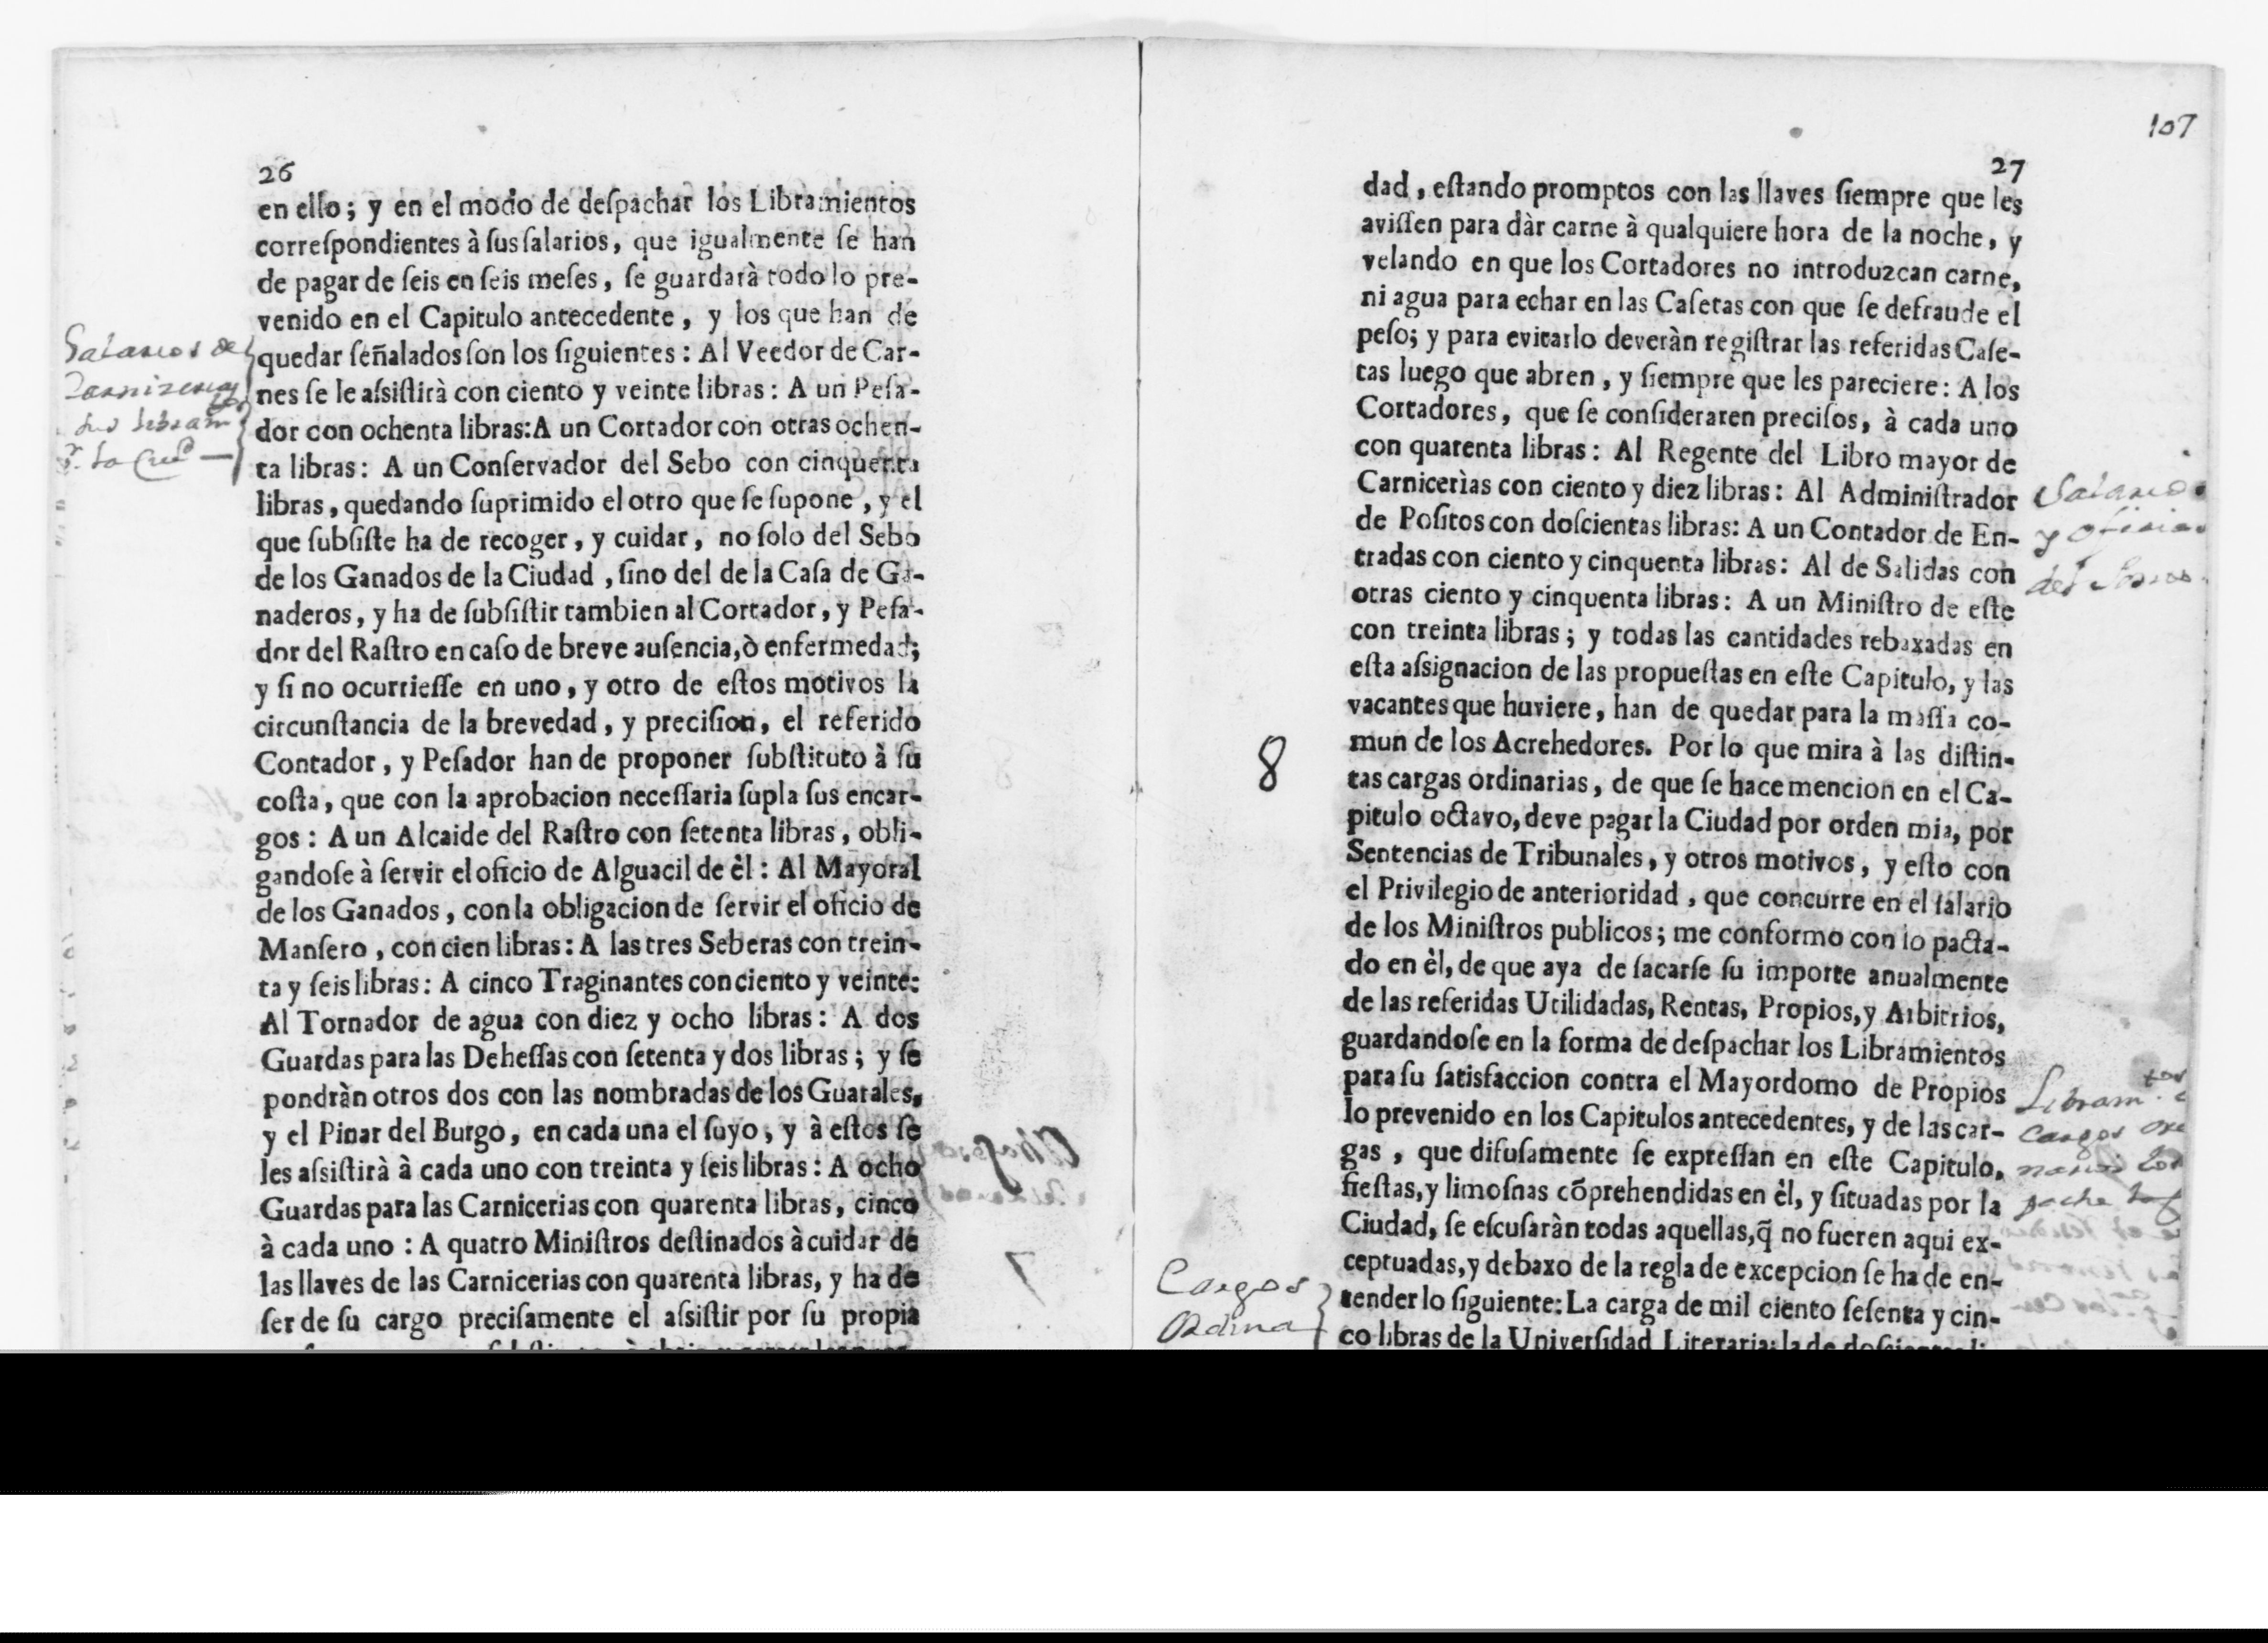 26
en ello; y en el modo de deſpachar los Libramientos
correſpondientes à ſus ſalarios, que igualmente ſe han
de pagar de ſeis en ſeis meſes, ſe guardarà todo lo pre-
venido en el Capitulo antecedente, y los que han de
quedar ſeñalados ſon los ſiguientes: Al Veedor de Car-
nes se le aſsiſtirà con ciento y veinte libras: A un Peſa-
dor con ochenta libras: A un Cortador con otras ochen-
ta libras: A un Conſervador del Sebo con cinquenta
libras, quedando ſuprimido el otro que ſe ſupone, y el
que ſubſiſte ha de recoger, y cuidar, no ſolo del Sebo
de los Ganados de la Ciudad, ſino del de la Caſa de Ga-
naderos, y ha de ſubſiſtir tambien al Cortador, y Peſa-
dor del Raſtro en caſo de breve auſencia, ò enfermedad;
y ſi no ocurrieſſe en uno, y otro de eſtos motivos la
circunſtancia de la brevedad, y preciſion, el referido
Contador, y Peſador han de proponer ſubſtituto à ſu
coſta, que con la aprobacion neceſſaria ſupla ſus encar-
gos: A un Alcaide del Raſtro con ſetenta libras, obli-
gandoſe à ſervir el oficio de Alguacil de èl: Al Mayoral
de los Ganados, con la obligacion de ſervir el oficio de
Manſero, con cien libras: A las tres Seberas con trein-
ta y ſeis libras: A cinco Traginantes con ciento y veinte:
Al Tornador de agua con diez y ocho libras: A dos
Guardas para las Deheſſas con ſetenta y dos libras; y ſe
pondràn otros dos con las nombradas de los Guarales,
y el Pinar del Burgo, en cada una el ſuyo, y à eſtos ſe
les aſsiſtirà à cada uno con treinta y ſeis libras: A ocho
Guardas para las Carnicerias con quarenta libras, cinco
à cada uno: A quatro Miniſtros deſtinados à cuidar de
las llaves de las Carnicerias con quarenta libras, y ha de
ſer de ſu cargo preciſamente el aſsiſtir por ſu propia
Salarios de
107
27
dad, eſtando promptos con las llaves ſiempre que les
aviſſen para dàr carne à qualquiere hora de la noche, y
velando en que los Cortadores no introduzcan carne,
ni agua para echar en las Caſetas con que ſe defraude el
peſo; y para evitarlo deveràn regiſtrar las referidas Caſe-
tas luego que abren, y ſiempre que les pareciere: A los
Cortadores, que ſe conſideraren preciſos, à cada uno
con quarenta libras: Al Regente del Libro mayor de
Carnicerìas con ciento y diez libras: Al Adminiſtrador
de Poſitos con doſcientas libras: A un Contador de En-
tradas con ciento y cinquenta libras: Al de Salidas con
otras ciento y cinquenta libras: A un Miniſtro de eſte
con treinta libras; y todas las cantidades rebaxadas en
eſta aſsignacion de las propueſtas en eſte Capitulo, y las
vacantes que huviere, han de quedar para la maſſa co-
mun de los Acrehedores. Por lo que mira à las diſtin-
tas cargas ordinarias, de que ſe hace mencion en el Ca-
pitulo octavo, deve pagar la Ciudad por orden mia, por
Sentencias de Tribunales, y otros motivos, y eſto con
el Privilegio de anterioridad, que concurre en el ſalario
de los Miniſtros publicos; me conformo con lo pacta-
do en èl, de que aya de ſacarſe ſu importe anualmente
de las referidas Utilidadas, Rentas, Propios, y Arbitrios,
guardandoſe en la forma de deſpachar los Libramientos
para ſu ſatisfaccion contra el Mayordomo de Propios
lo prevenido en los Capitulos antecedentes, y de las car-
gas, que difuſamente ſe expreſſan en eſte Capitulo,
fieſtas, y limoſnas cõprehendidas en èl, y ſituadas por la
Ciudad, ſe eſcuſaràn todas aquellas, q̃ no fueren aqui ex-
ceptuadas, y debaxo de la regla de excepcion ſe ha de en-
tender lo ſiguiente: La carga de mil ciento ſeſenta y cin-
co libras de la Univerſidad Literaria; la de doſcientas li-
8
Cargos
Ordina
Salario
y oficia
del
Libram.
cargos